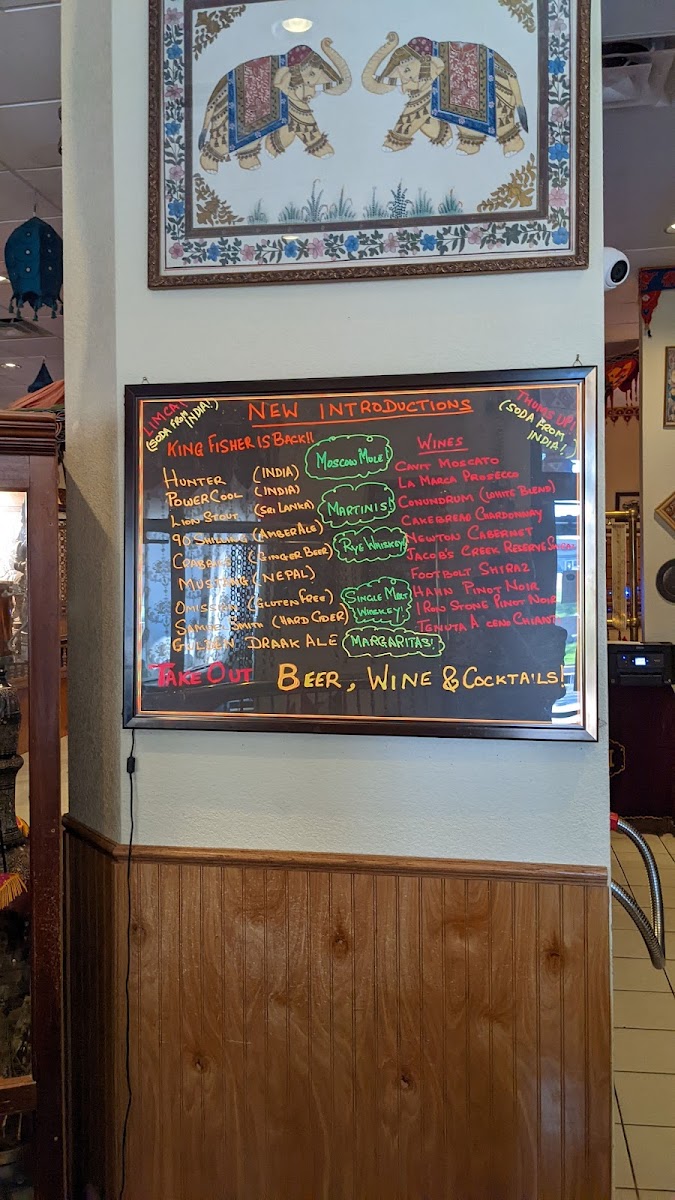 NEW INTRODUCTIONS
LIMCA!
(SODA FROM INDIA!)
THUMBS UP!
(SODA FROM INDIA!)
KING FISHER IS BACK!!
HUNTER (INDIA)
POWERCOOL (INDIA)
LION STOUT (SRI LANKA)
90 SHILLING (AMBER ALE)
CRABBIES (GINGER BEER)
MUSTANG (NEPAL)
OMISSION (GLUTEN FREE)
SAMUEL SMITH (HARD CIDER)
GULDEN DRAAK ALE
MOSCOW MULE!
MARTINIS!
RYE WHISKEY!
SINGLE MALT WHISKEY!
MARGARITAS!
WINES
CAVIT MOSCATO
LA MARCA PROSECCO
CONUNDRUM (WHITE BLEND)
CAKEBREAD CHARDONNAY
NEWTON CABERNET
JACOB'S CREEK RESERVE SHIRAZ
FOOTBOLT SHIRAZ
HAHN PINOT NOIR
IRON STONE PINOT NOIR
TENUTA A CENO CHIANTI
TAKE OUT BEER, WINE & COCKTAILS!